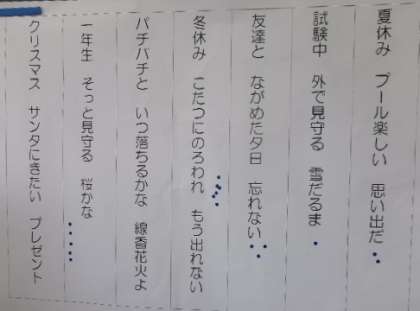 夏休み プール楽しい 思い出だ
試験中 外で見守る 雪だるま
友達と ながめた夕日 忘れない
冬休み こたつにのろわれ もう出れない
パチパチと いつ落ちるかな 線香花火よ
一年生 そっと見守る 桜かな
クリスマス サンタにきたい プレゼント